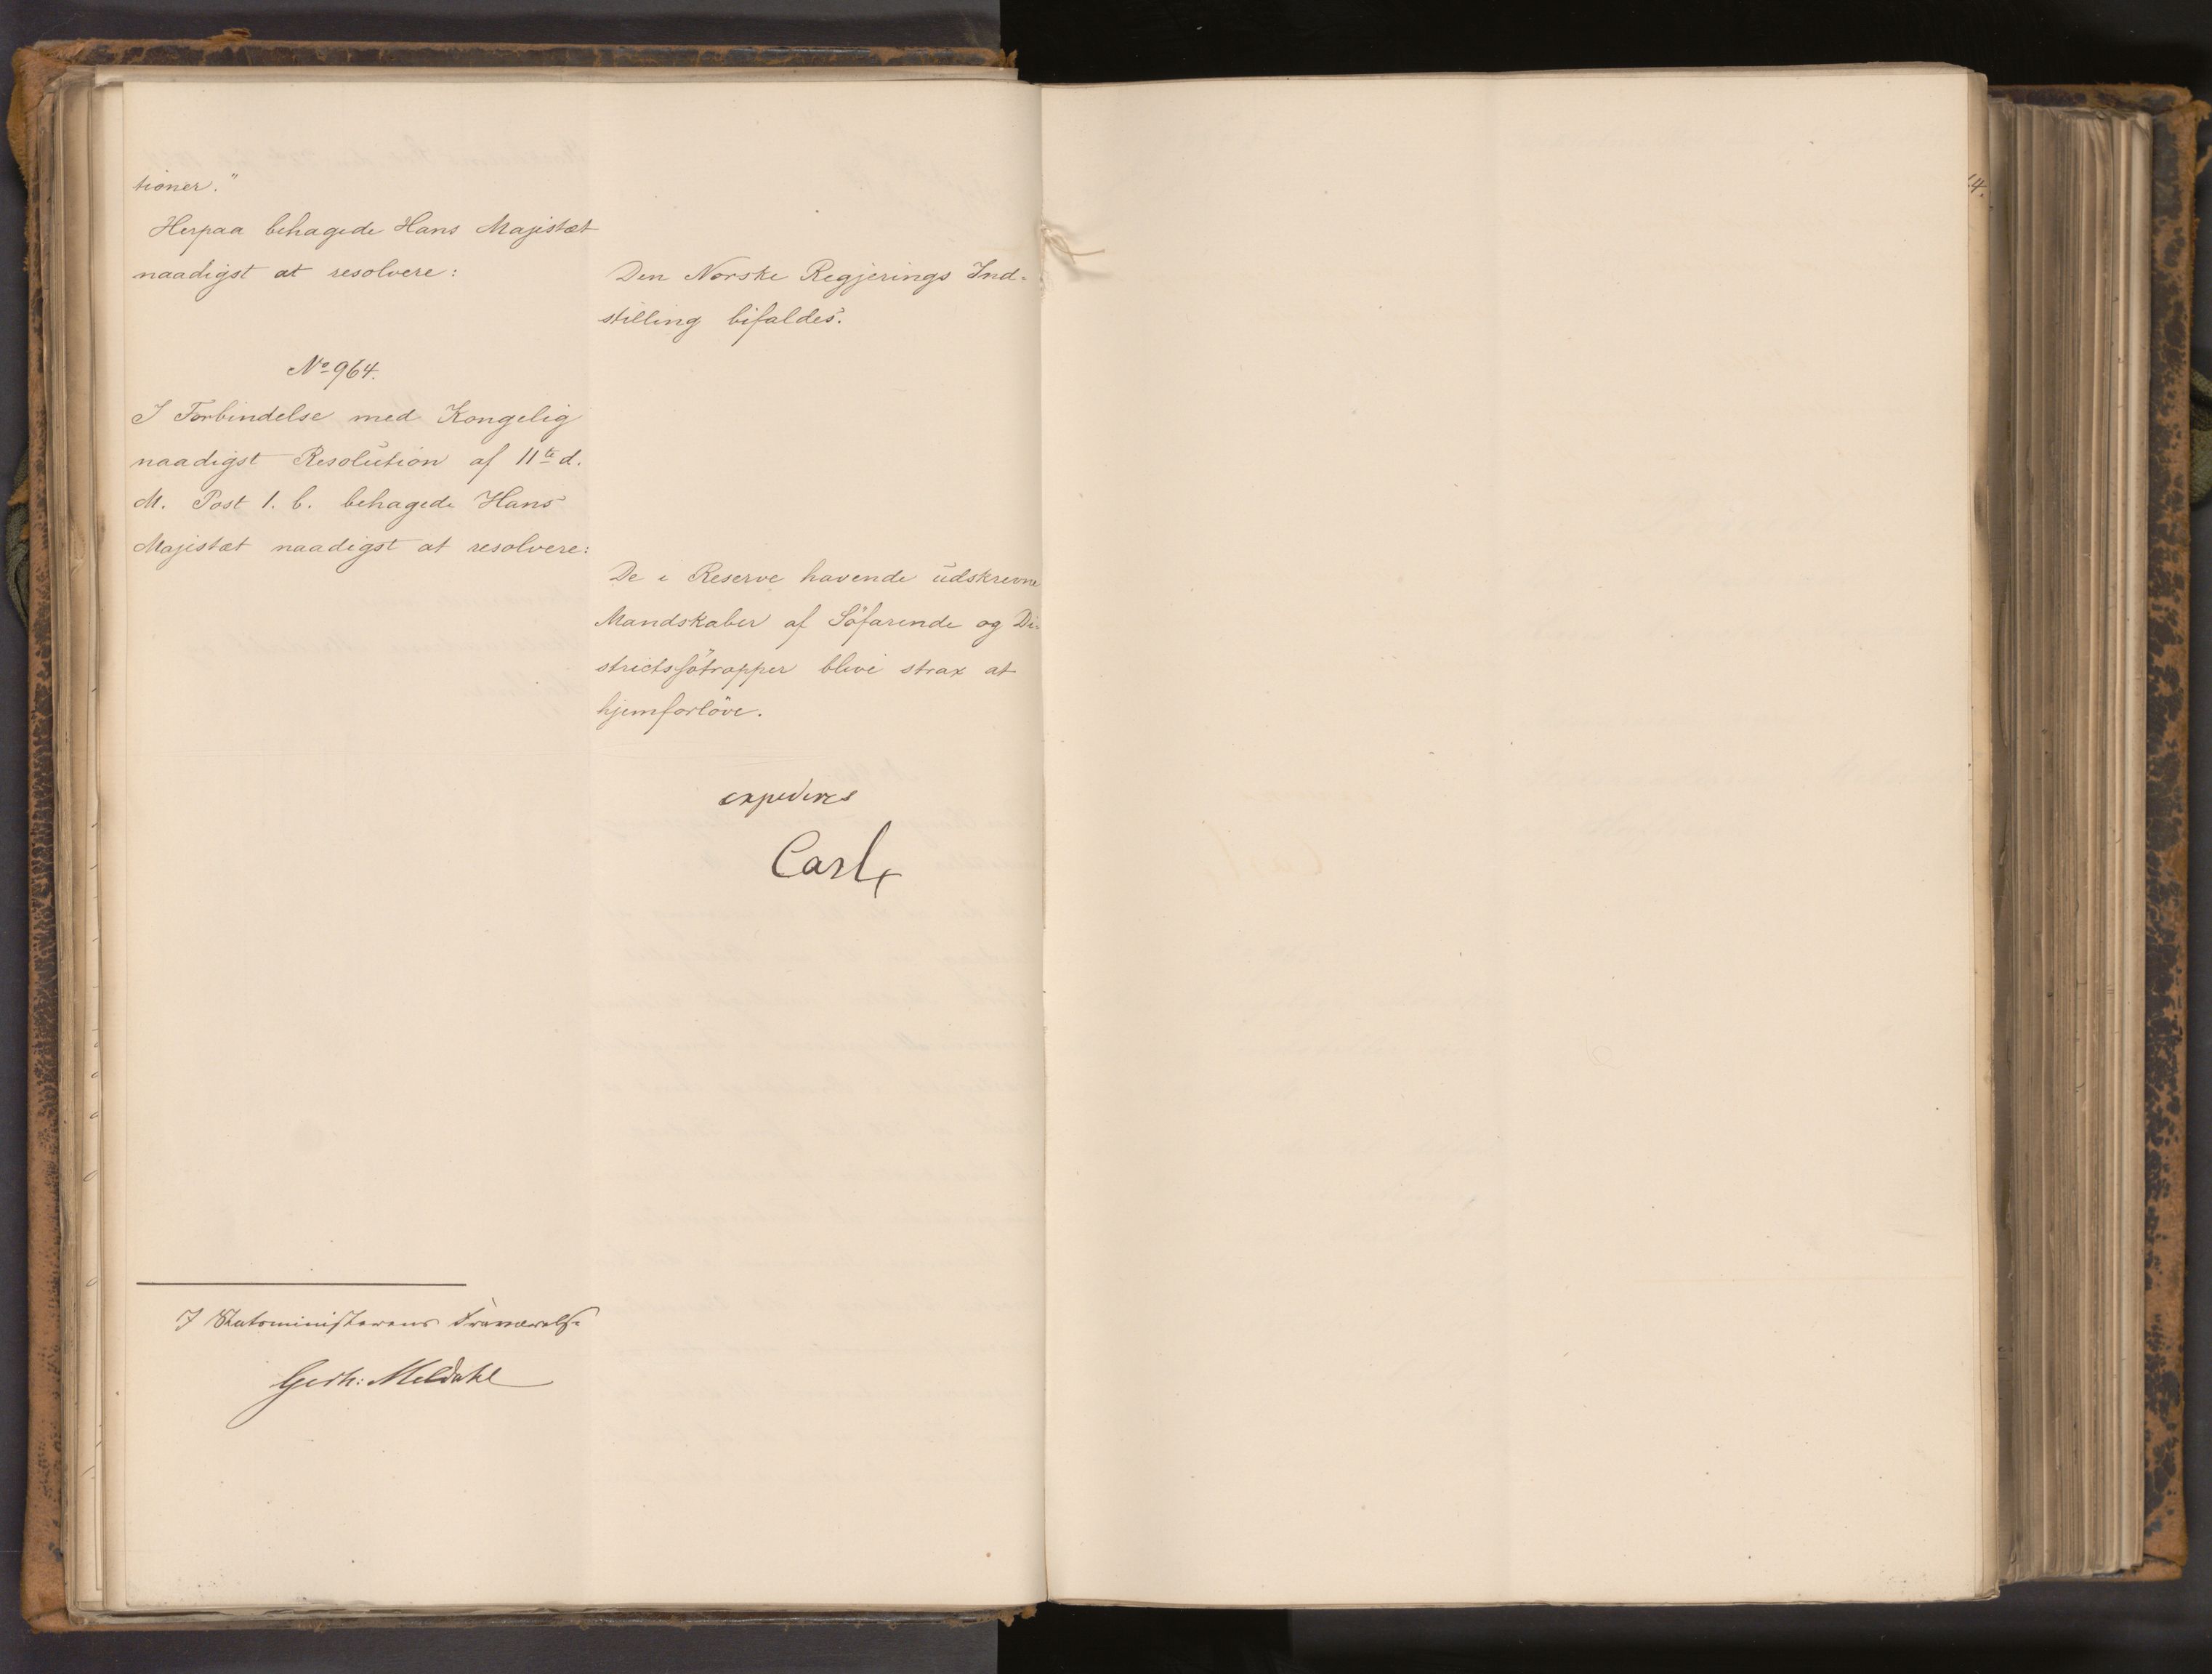 tioner."
Herpaa behagede Hans Majestæt
naadigst at resolvere:
Den Norske Regjerings Ind-
stilling bifaldes.
No 964.
I Forbindelse med Kongelig
naadigst Resolution af 11te d.
M. Post 1. b. behagede Hans
Majestæt naadigst at resolvere:
De i Reserve havende udskrevne
Mandskaber af Söfarende og Di-
strictssötropper blive strax at
hjemforlöve.
expederes
Carl
I Statsministerens Fraværelse
Gerh: Meldahl